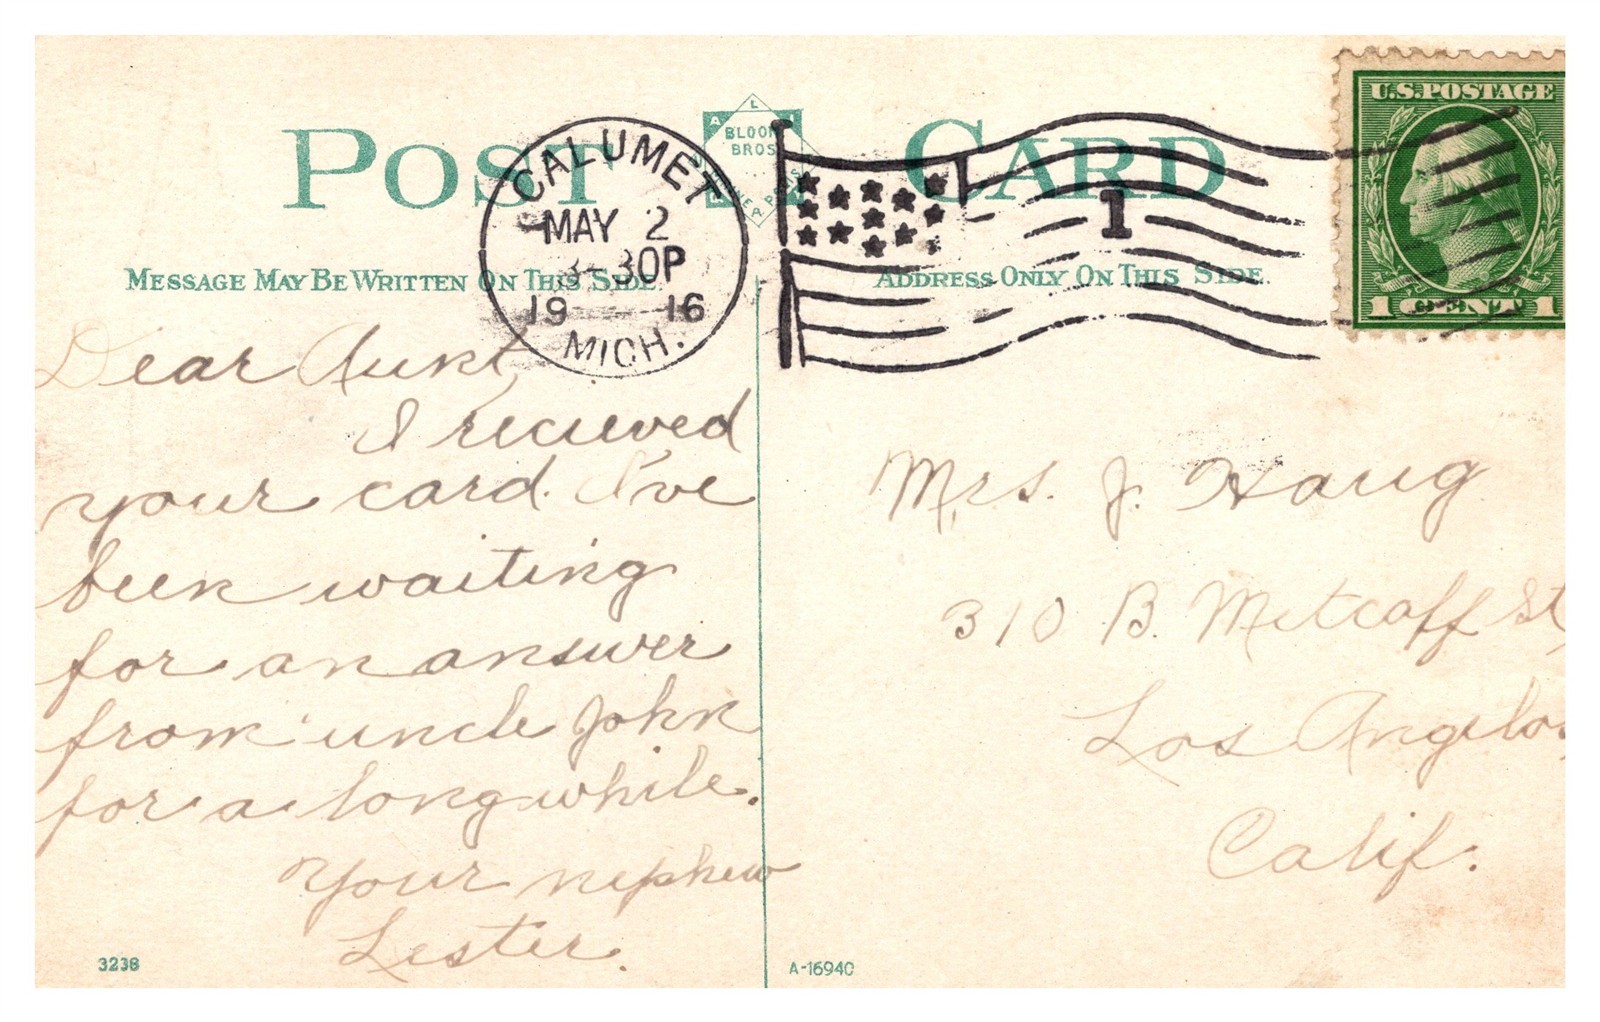 POST CARD
BLOOM
BROS
U.S. POSTAGE
1 CENT 1
CALUMET
MAY 2
3-30P
1916
MICH.
1
MESSAGE MAY BE WRITTEN ON THIS SIDE.
ADDRESS ONLY ON THIS SIDE.
Dear Aunt,
I recieved
your card. I've
been waiting
for an answer
from uncle John
for a long while.
Your nephew
Lester.
Mrs. J. Haug
310 B. Metcalff St,
Los Angelos
Calif.
3238
A-16940